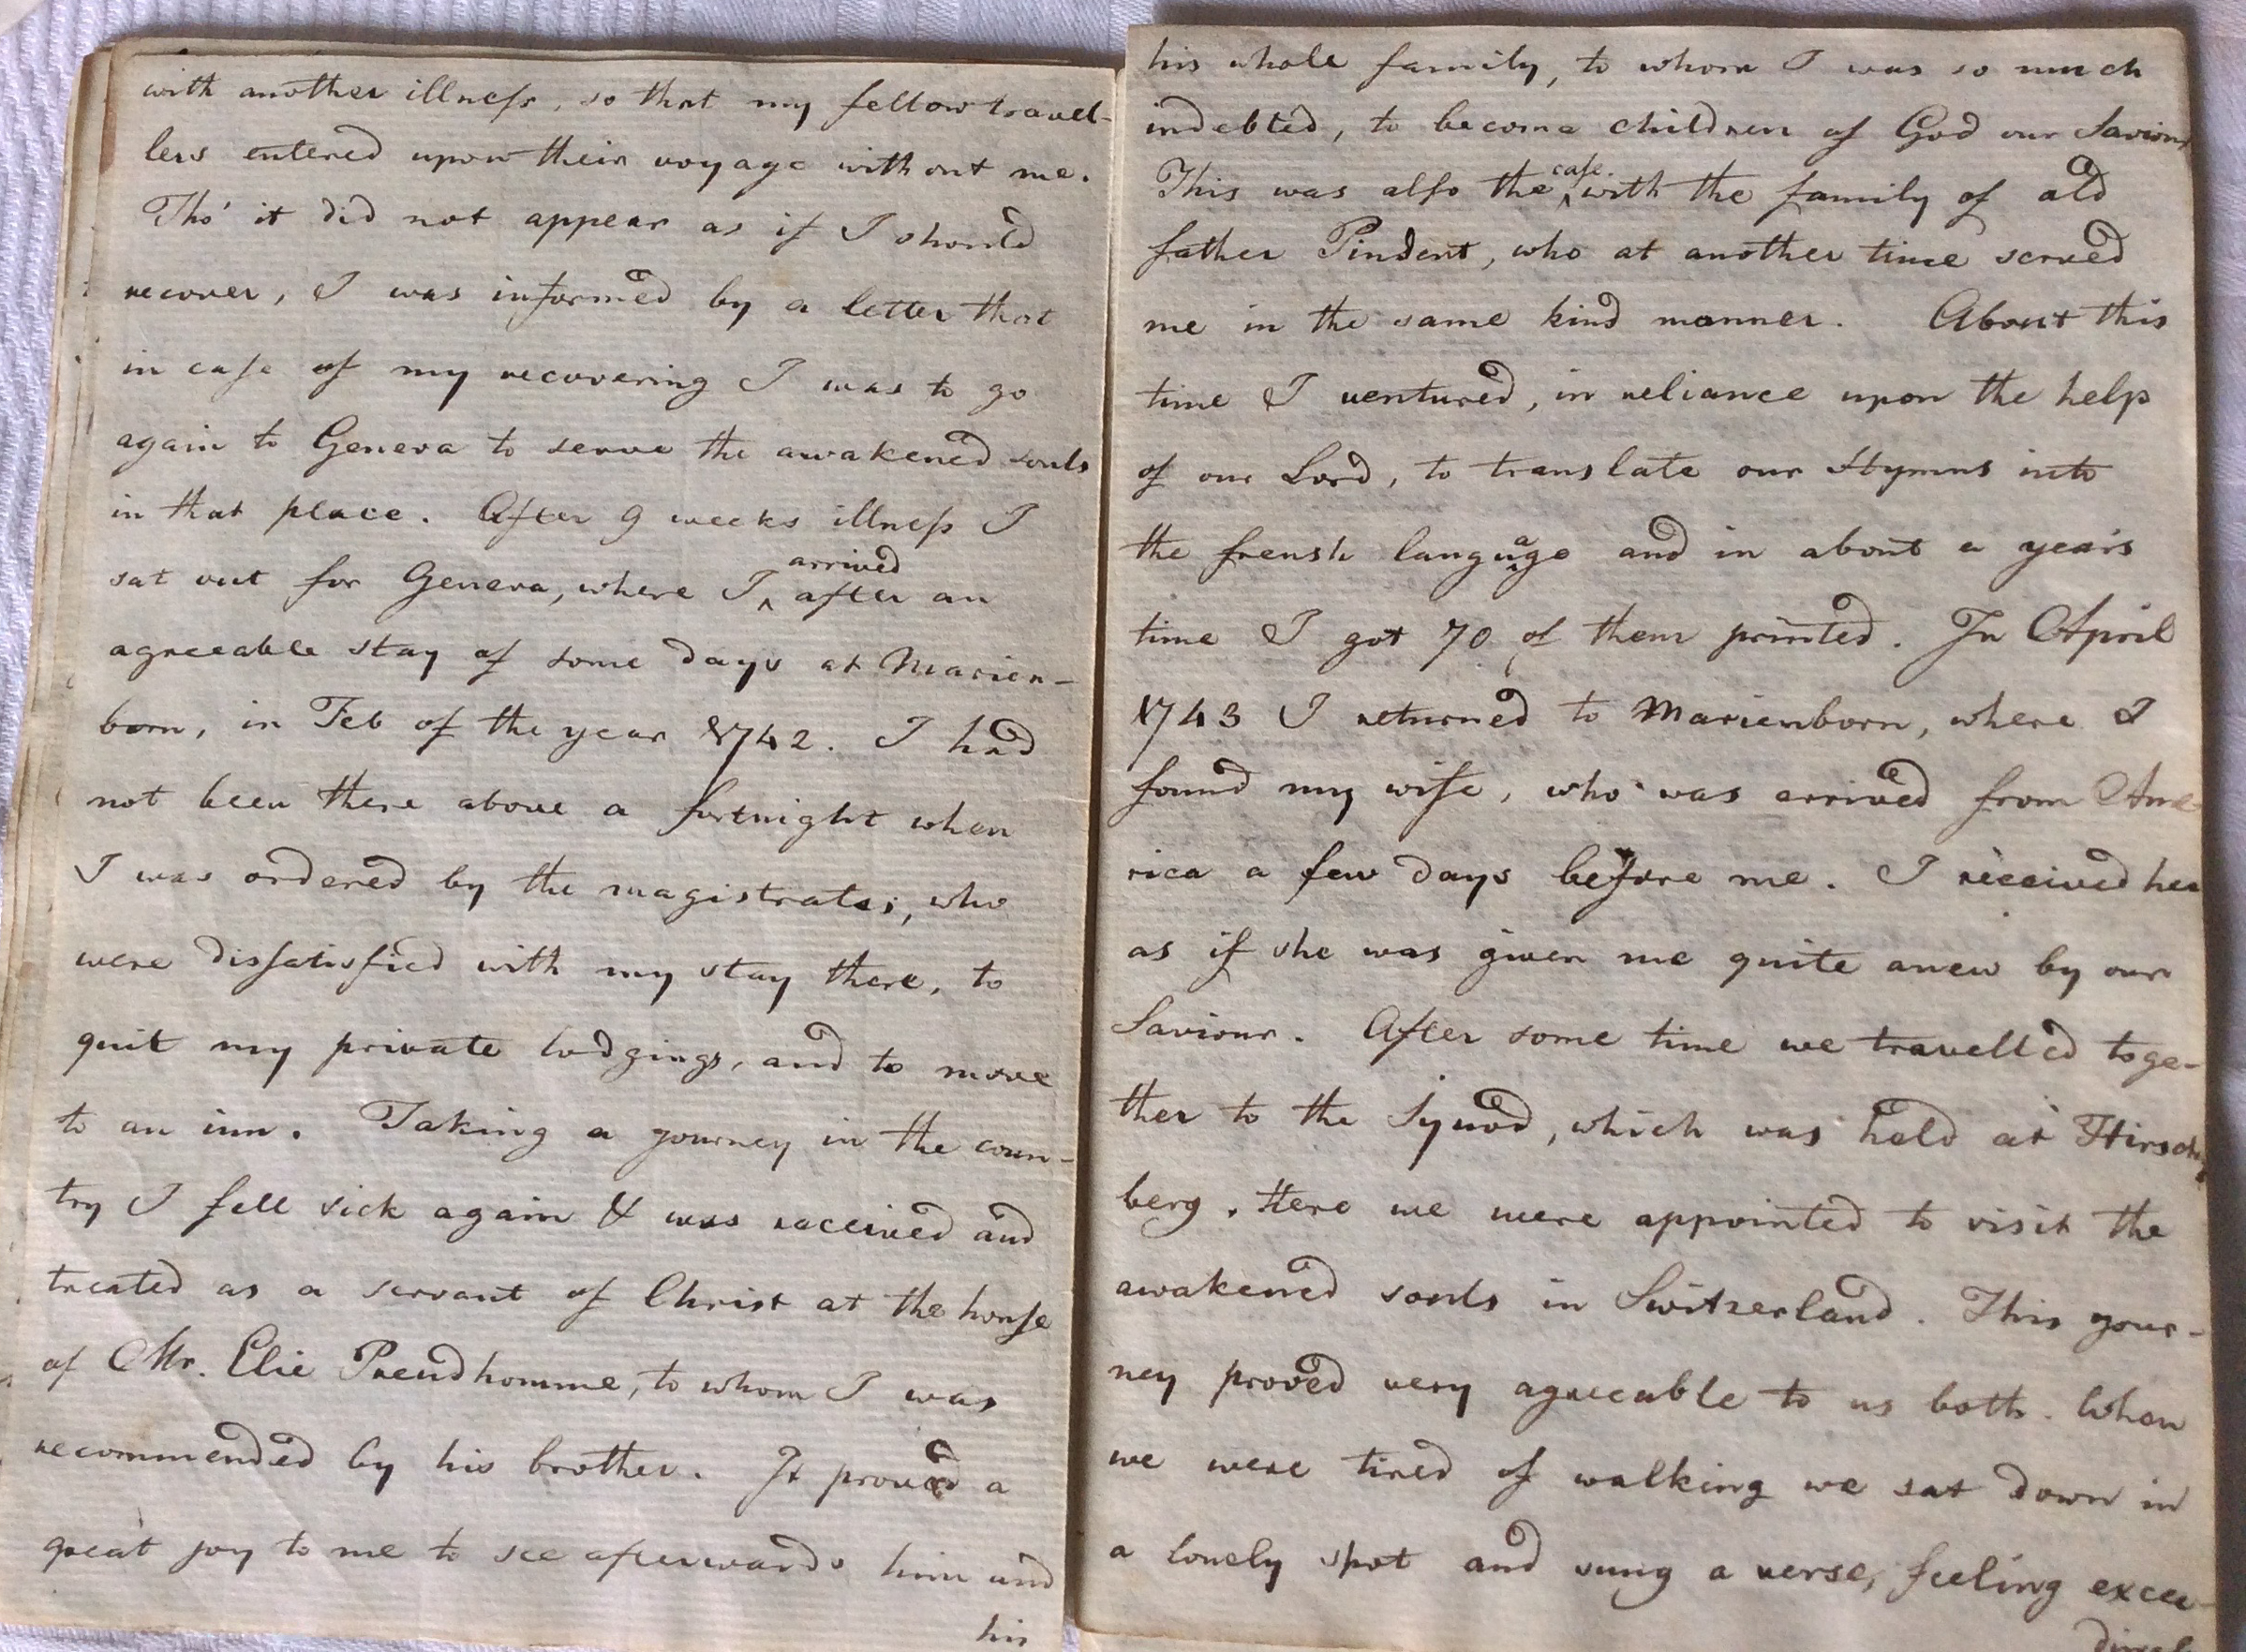 with another illness, so that my fellow travel-
lers entered upon their voyage without me.
Tho' it did not appear as if I should
recover, I was informed by a letter that
in case of my recovering I was to go
again to Geneva to serve the awakened souls
in that place. After 9 weeks illness I
sat out for Geneva, where I ^ arrived after an
agreeable stay of some days at Marien-
born, in Feb of the year 1742. I had
not been there above a fortnight when
I was ordered by the magistrates, who
were dissatisfied with my stay there, to
quit my private lodgings, and to move
to an inn. Taking a journey in the coun-
try I fell sick again & was received and
treated as a servant of Christ at the house
of Mr. Elie Preudhomme, to whom I was
recommended by his brother. It proved a
great joy to me to see afterwards him and
his
his whole family, to whom I was so much
indebted, to become children of God our Saviour
This was also the ^ case. with the family of old
father Pindent, who at another time served
me in the same kind manner. About this
time I ventured, in reliance upon the help
of our Lord, to translate our Hymns into
the frensh language and in about a years
time I got 70 of them printed. In April
1743 I returned to Marienborn, where I
found my wife, who was arrived from Ame-
rica a few days before me. I received her
as if she was given me quite anew by our
Saviour. After some time we travelled toge-
ther to the Synod, which was held at Hirsch
berg. Here we were appointed to visit the
awakened souls in Switzerland. This jour-
ney proved very agreeable to us both. When
we were tired of walking we sat down in
a lonely spot and sung a verse, feeling excee-